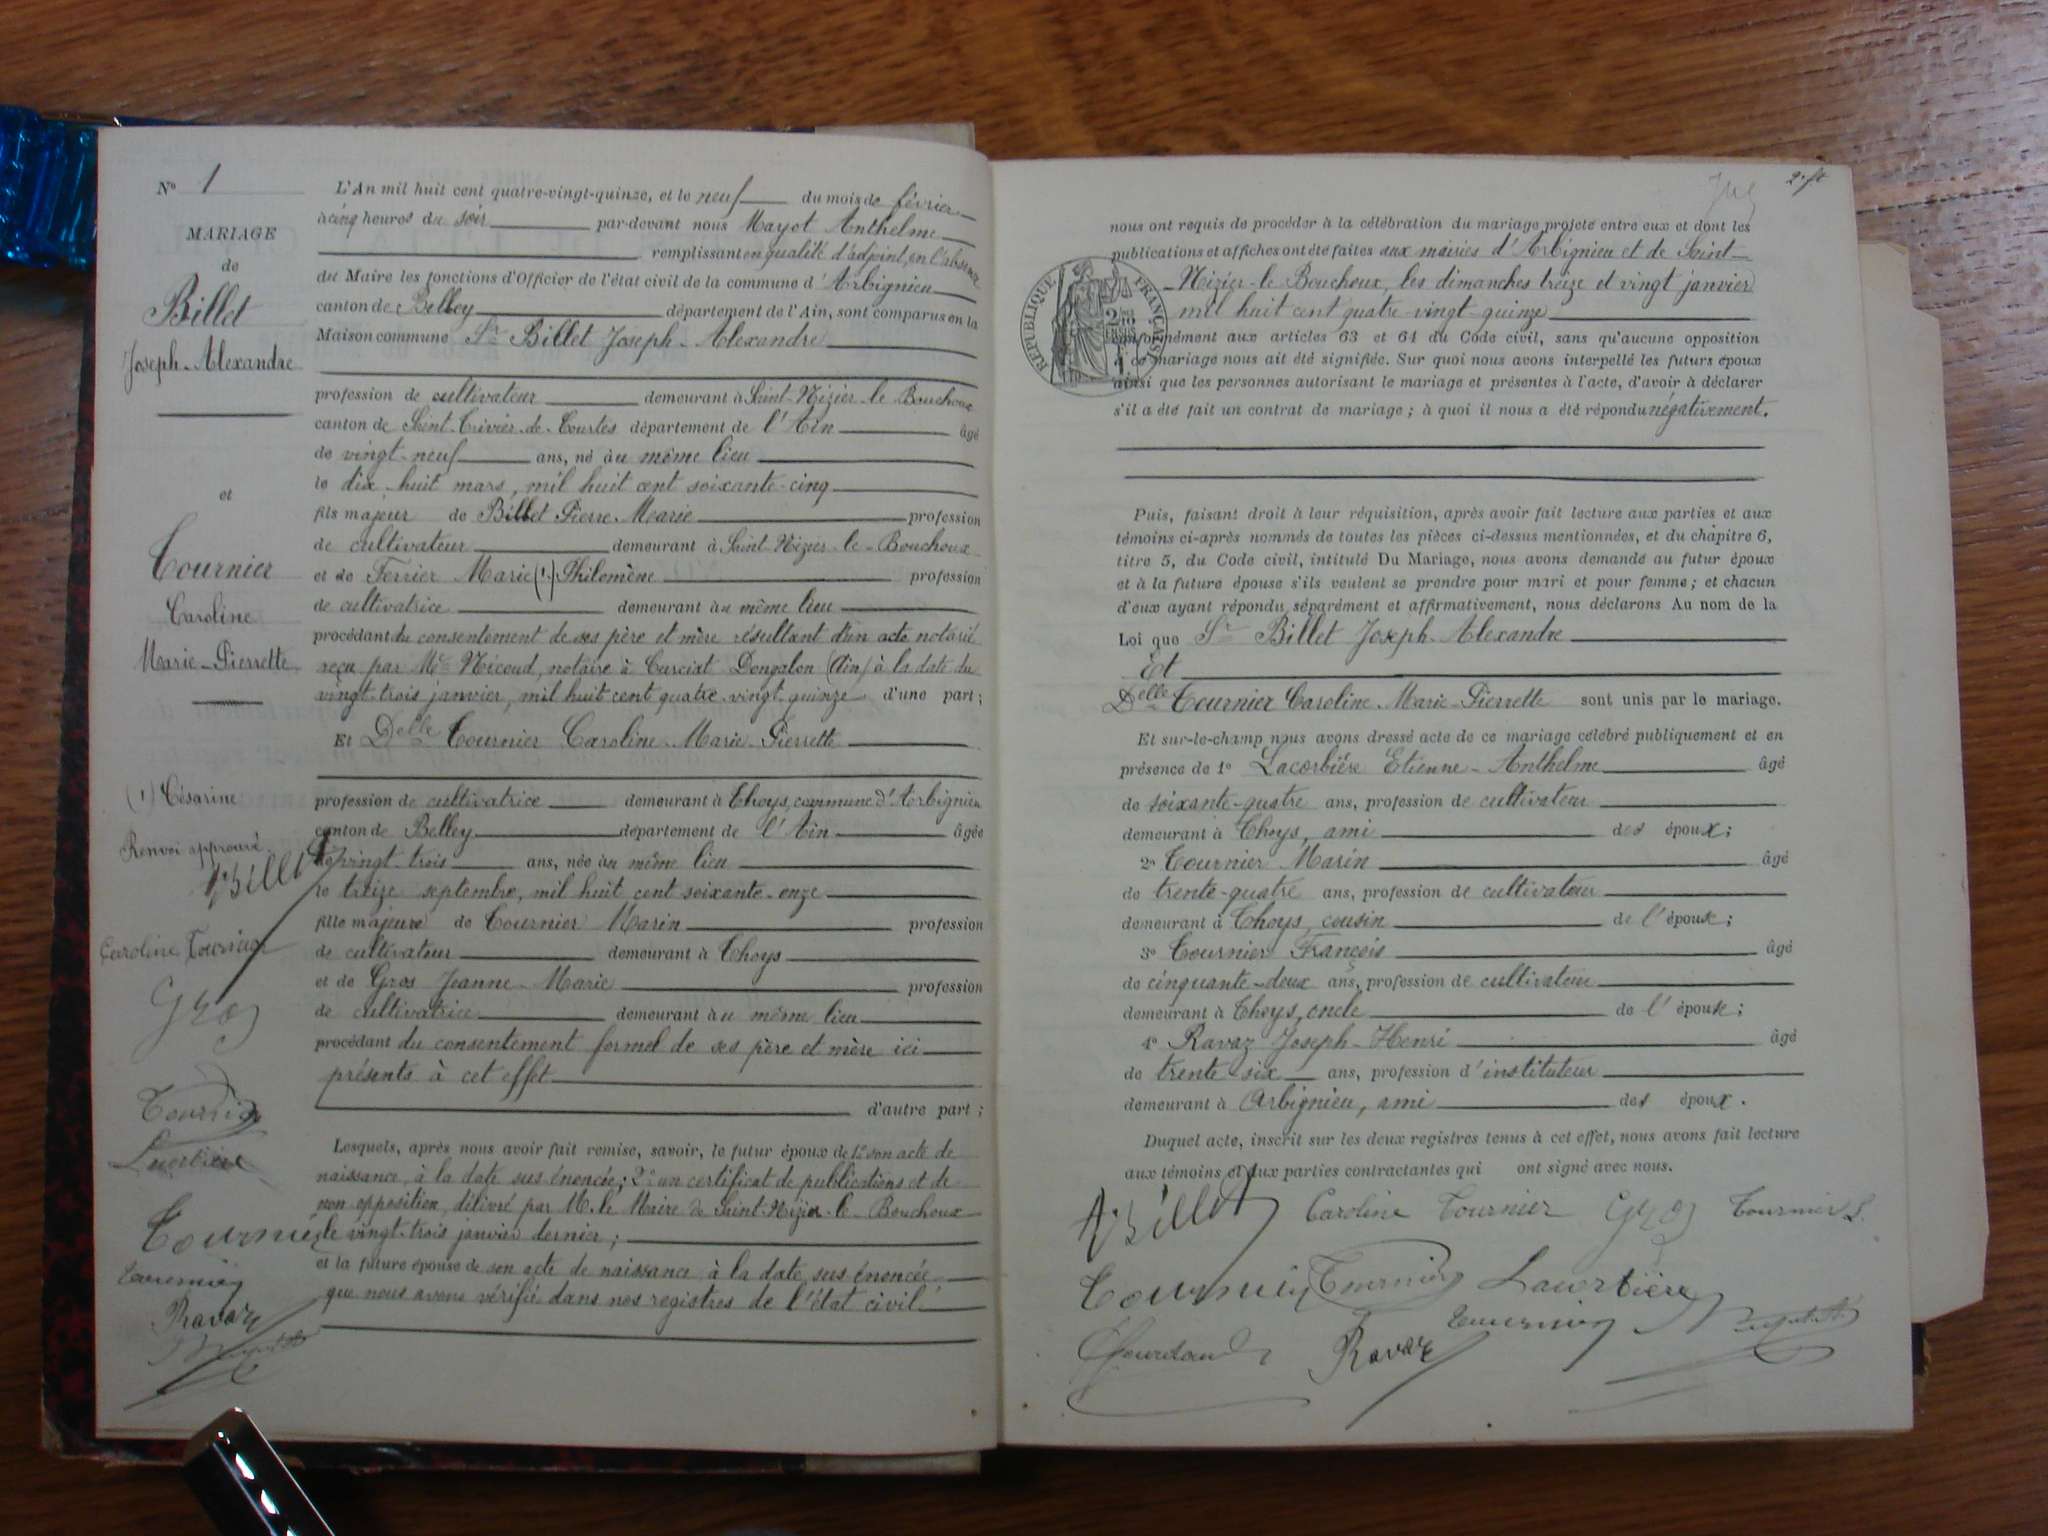 N° 1
MARIAGE
de
Billet
Joseph-Alexandre
et
Tournier
Caroline
Marie-Pierrette
(1) Césarine
Renvoi approuvé
A. Billet
Caroline Tournier
Gros
Tournier
Lacorbière
Tournier
Tournier
Ravaz
L'An mil huit cent quatre-vingt-quinze, et le neuf du mois de février
à cinq heures du soir par-devant nous Mayot Anthelme
remplissant en qualité d'adjoint, en l'absence
du Maire les fonctions d'Officier de l'état civil de la commune d'Arbignieu
canton de Belley département de l'Ain, sont comparus en la
Maison commune Sr Billet Joseph-Alexandre
profession de cultivateur demeurant à Saint-Nizier-le Bouchoux
canton de Saint-Trivier-de-Courtes département de l'Ain âgé
de vingt-neuf ans, né au même lieu
le dix-huit mars, mil huit cent soixante-cinq
fils majeur de Billet Pierre-Marie profession
de cultivateur demeurant à Saint-Nizier-le-Bouchoux
et de Ferrier Marie (1) Philomène profession
de cultivatrice demeurant au même lieu
procédant du consentement de ses père et mère résultant d'un acte notarié
reçu par Me Nicoud, notaire à Curciat-Dongalon (Ain) à la date du
vingt-trois janvier, mil huit cent quatre-vingt-quinze d'une part;
Et Delle Tournier Caroline-Marie-Pierrette
profession de cultivatrice demeurant à Thoys, commune d'Arbignieu
canton de Belley département de l'Ain âgée
de vingt-trois ans, née au même lieu
le treize septembre, mil huit cent soixante-onze
fille majeure de Tournier Marin profession
de cultivateur demeurant à Thoys
et de Gros Jeanne-Marie profession
de cultivatrice demeurant au même lieu
procédant du consentement formel de ses père et mère ici
présents à cet effet
d'autre part;
Lesquels, après nous avoir fait remise, savoir, le futur époux de 1° son acte de
naissance, à la date sus énoncée; 2° un certificat de publications et de
non opposition, délivré par M. le Maire de Saint-Nizier-le-Bouchoux
le vingt-trois janvier dernier;
et la future épouse de son acte de naissance à la date sus énoncée
que nous avons vérifié dans nos registres de l'état civil
2e ft
nous ont requis de procéder à la célébration du mariage projeté entre eux et dont les
publications et affiches ont été faites aux mairies d'Arbignieu et de Saint-
Nizier-le Bouchoux, les dimanches treize et vingt janvier
mil huit cent quatre-vingt-quinze
RÉPUBLIQUE FRANÇAISE
conformément aux articles 63 et 64 du Code civil, sans qu'aucune opposition
à ce mariage nous ait été signifiée. Sur quoi nous avons interpellé les futurs époux
ainsi que les personnes autorisant le mariage et présentes à l'acte, d'avoir à déclarer
s'il a été fait un contrat de mariage; à quoi il nous a été répondu négativement.
Puis, faisant droit à leur réquisition, après avoir fait lecture aux parties et aux
témoins ci-après nommés de toutes les pièces ci-dessus mentionnées, et du chapitre 6,
titre 5, du Code civil, intitulé Du Mariage, nous avons demandé au futur époux
et à la future épouse s'ils veulent se prendre pour mari et pour femme; et chacun
d'eux ayant répondu séparément et affirmativement, nous déclarons Au nom de la
Loi que Sr Billet Joseph-Alexandre
Et
Delle Tournier Caroline-Marie-Pierrette sont unis par le mariage.
Et sur-le-champ nous avons dressé acte de ce mariage célébré publiquement et en
présence de 1° Lacorbière Etienne-Anthelme âgé
de soixante-quatre ans, profession de cultivateur
demeurant à Thoys, ami des époux;
2° Tournier Marin âgé
de trente-quatre ans, profession de cultivateur
demeurant à Thoys, cousin de l'épouse;
3° Tournier François âgé
de cinquante-deux ans, profession de cultivateur
demeurant à Thoys, oncle de l'épouse;
4° Ravaz Joseph-Henri âgé
de trente six ans, profession d'instituteur
demeurant à Arbignieu, ami des époux.
Duquel acte, inscrit sur les deux registres tenus à cet effet, nous avons fait lecture
aux témoins et aux parties contractantes qui ont signé avec nous.
A. Billet Caroline Tournier Gros Tournier L.
Tournier Tournier Lacorbière
Ravaz Tournier